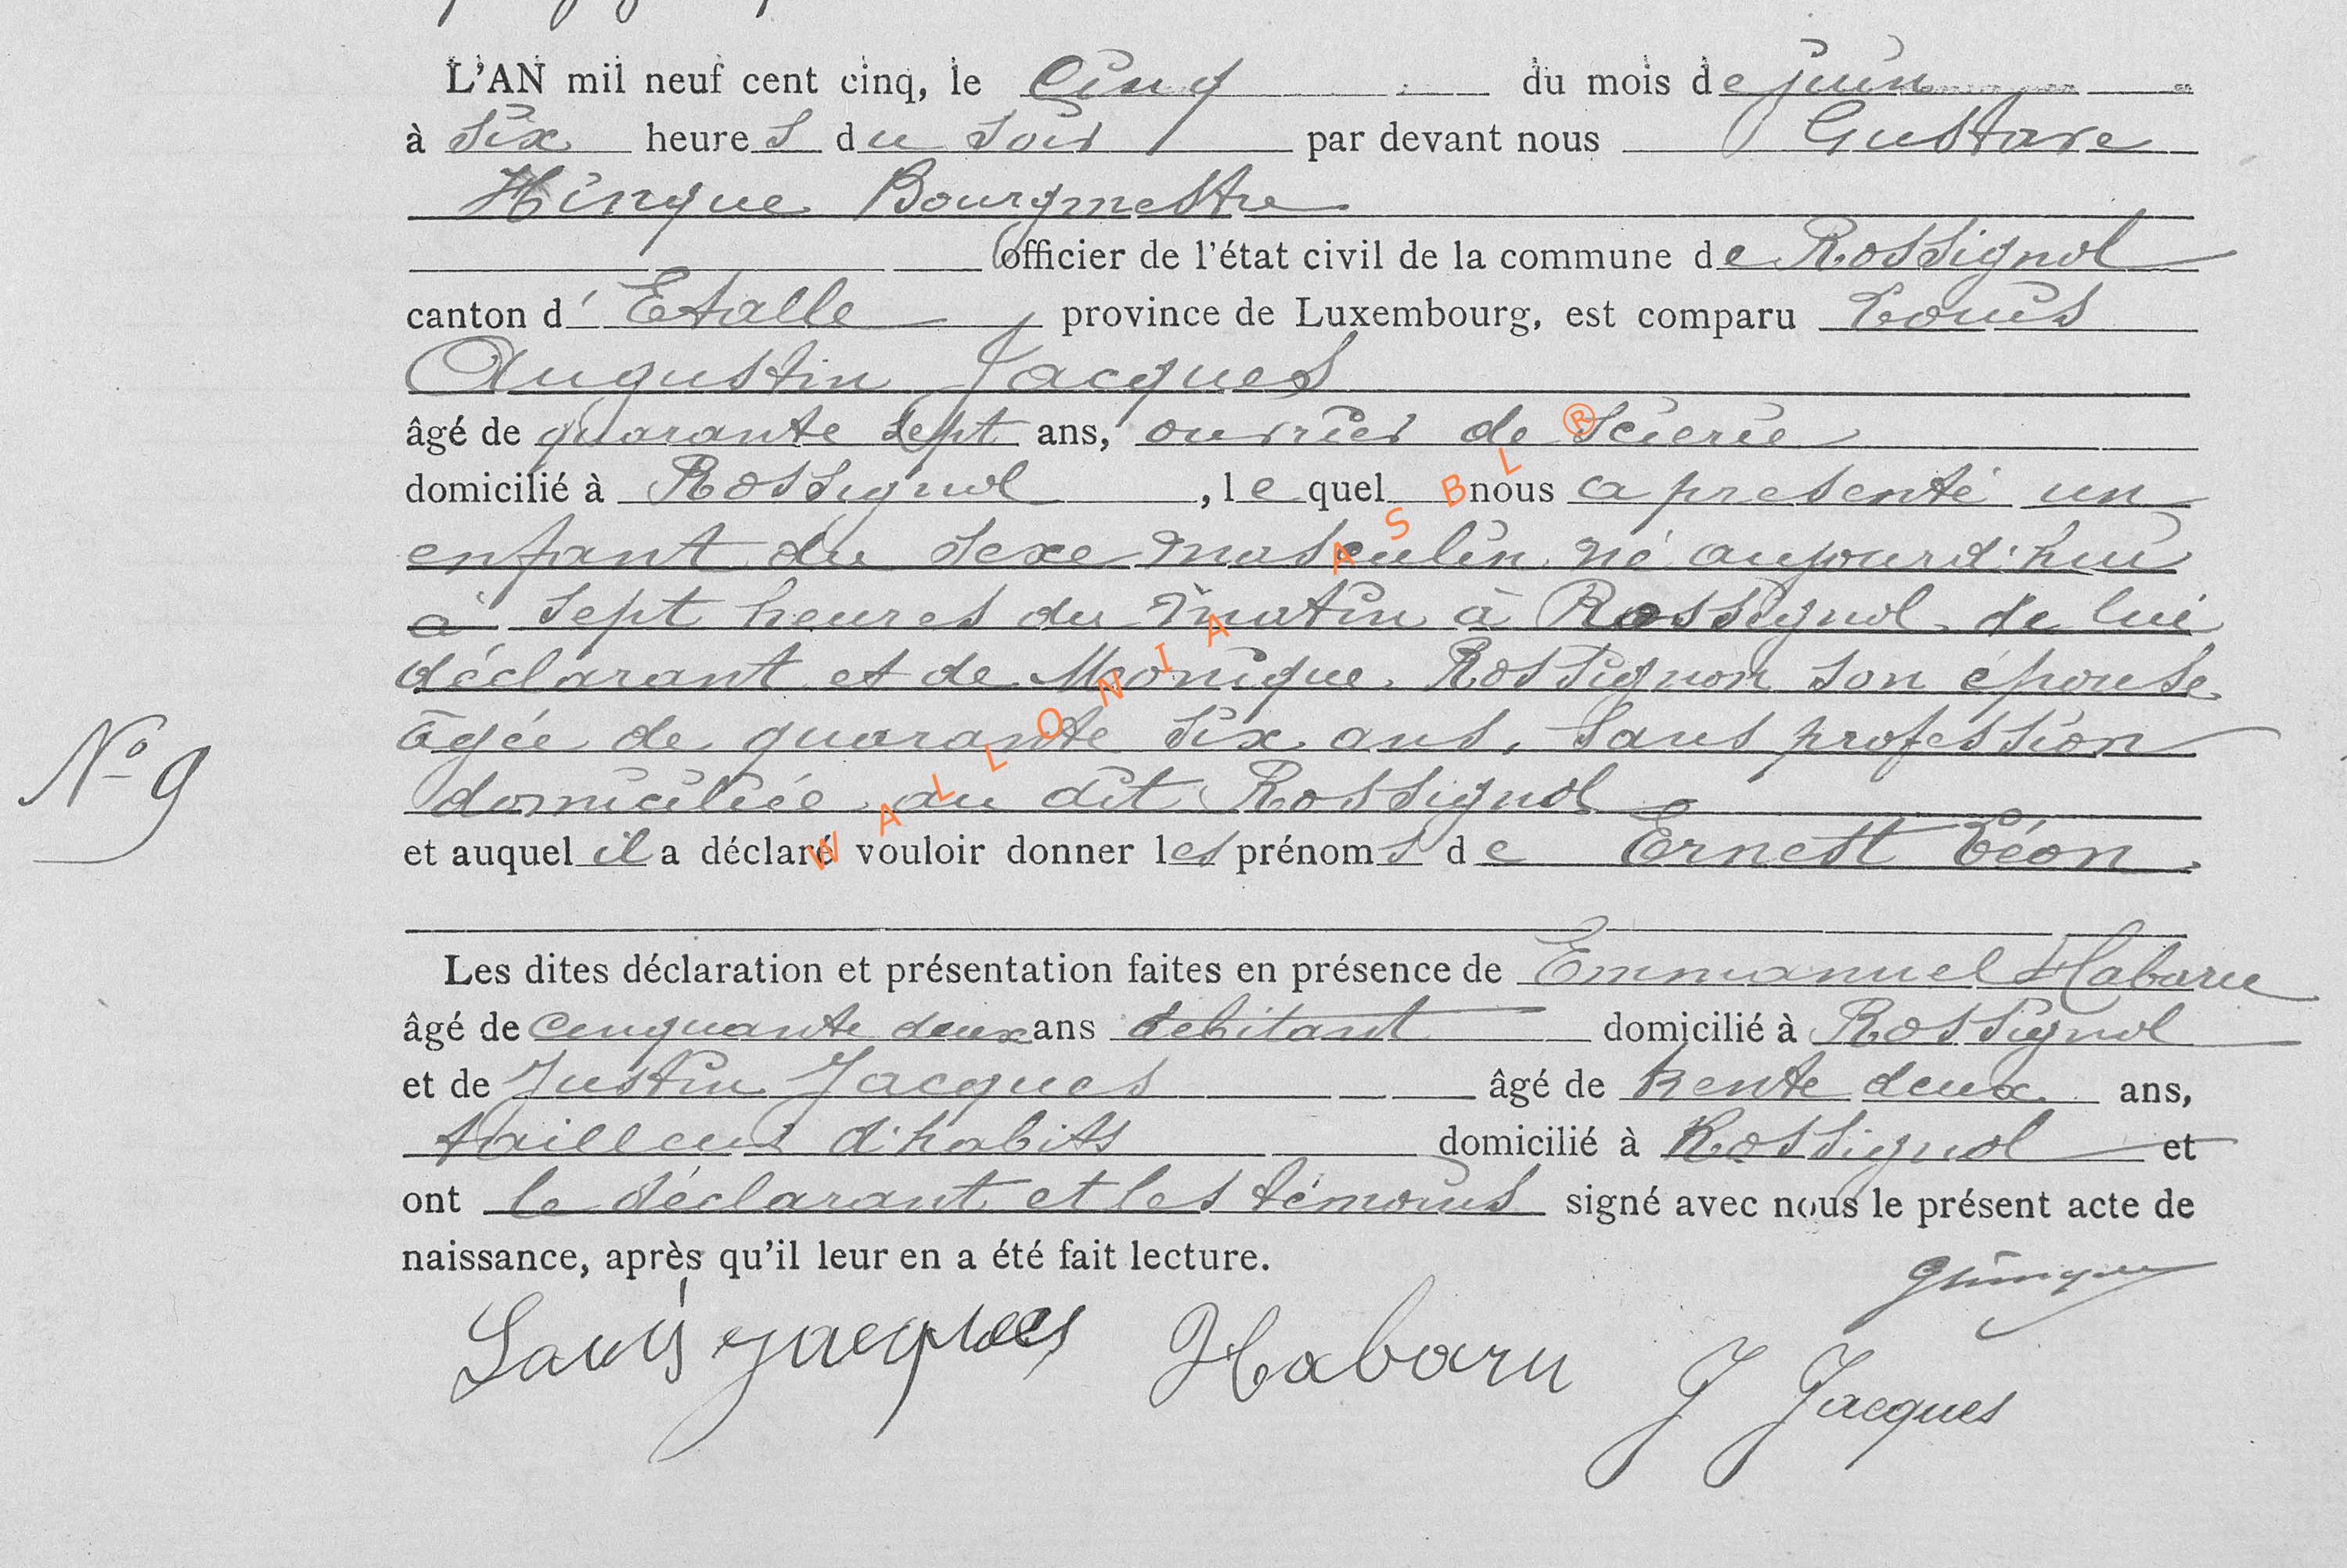 L'AN mil neuf cent cinq, le Cinq du mois de juin
à Six heures du soir par devant nous Gustave
Hinque Bourgmestre
officier de l'état civil de la commune de Rossignol
canton d'Etalle province de Luxembourg, est comparu Louis
Augustin Jacques
âgé de quarante sept ans, ouvrier de scierie
domicilié à Rossignol, lequel nous a présenté un
enfant du sexe masculin né aujourd'hui
à sept heures du matin à Rossignol de lui
déclarant et de Monique Rossignon son épouse
âgée de quarante six ans, sans profession
domiciliée au dit Rossignol
et auquel il a déclaré vouloir donner les prénoms de Ernest Léon
N° 9
Les dites déclaration et présentation faites en présence de Emmanuel Habaru
âgé de cinquante deux ans debitant domicilié à Rossignol
et de Justin Jacques âgé de trente deux ans,
tailleur d'habits domicilié à Rossignol et
ont le déclarant et les témoins signé avec nous le présent acte de
naissance, après qu'il leur en a été fait lecture.
GHinque
Louis jacques Habaru J Jacques
WALLONIA ASBL ®